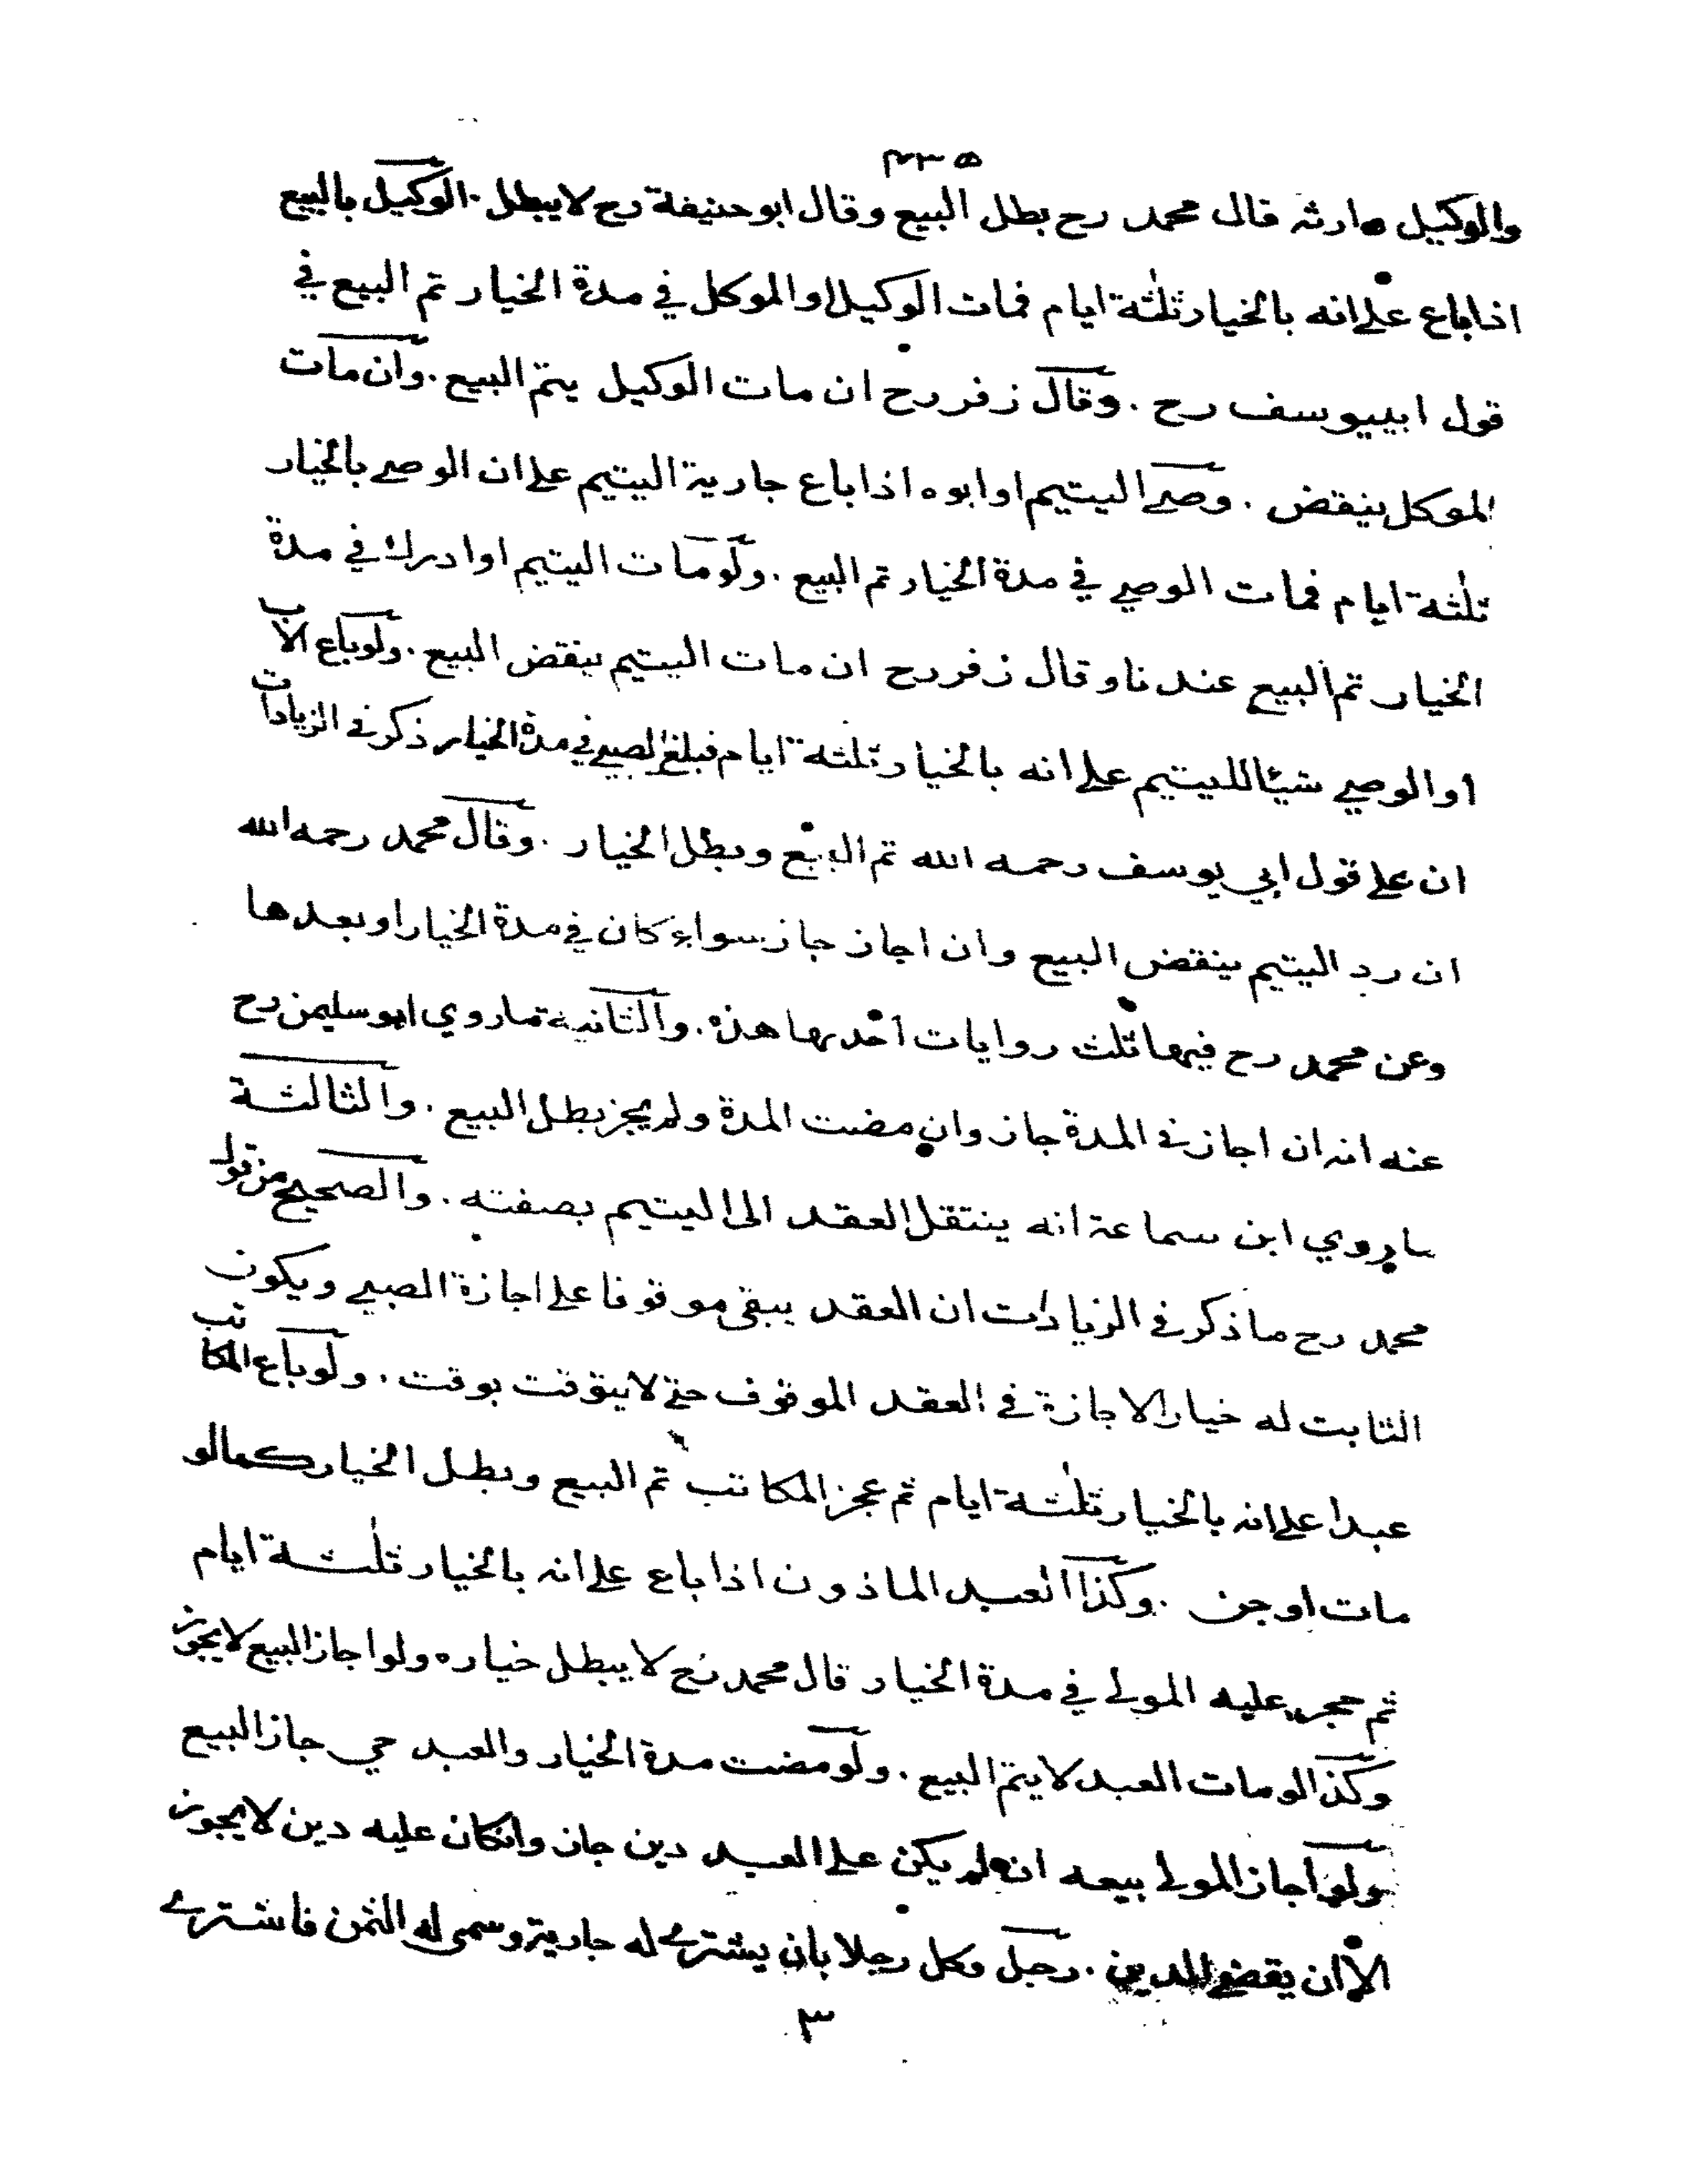 ٢٣٥
والوكيل وارثه قال محمد رح بطل البيع وقال ابو حنيفة رح لا يبطل . الوكيل بالبيع
اذا باع على انه بالخيار ثلثة ايام فمات الوكيل او الموكل في مدة الخيار تم البيع في
قول ابييوسف رح . وقال زفر رح ان مات الوكيل يتم البيع . وان مات
الموكل ينقض . وصى اليتيم او ابوه اذا باع جارية اليتيم على ان الوصي بالخيار
ثلثة ايام فمات الوصي في مدة الخيار تم البيع . ولو مات اليتيم او ادرك في مدة
الخيار تم البيع عندنا وقال زفر رح ان مات اليتيم ينقض البيع . ولو باع الاب
او الوصي شيئا لليتيم على انه بالخيار ثلثة ايام فبلغ الصبي في مدة الخيار ذكر في الزيادات
ان على قول ابي يوسف رحمه الله تم البيع وبطل الخيار . وقال محمد رحمه الله
ان رد اليتيم ينقض البيع وان اجاز جاز سواء كان في مدة الخيار او بعدها
وعن محمد رح فيها ثلث روايات احدها هذه . والثانية ما روي ابو سليمن رح
عنه انه ان اجاز في المدة جاز وان مضت المدة ولم يجز بطل البيع . والثالثة
ما روي ابن سماعة انه ينتقل العقد الى اليتيم بصفته . والصحيح من قول
محمد رح ما ذكر في الزيادات ان العقد يبقى موقوفا على اجازة الصبي ويكون
الثابت له خيار الاجازة في العقد الموقوف حتى لا يتوقت بوقت . ولو باع المكاتب
عبدا على انه بالخيار ثلثة ايام ثم عجز المكاتب تم البيع وبطل الخيار كما لو
مات او جن . وكذا العبد الماذون اذا باع على انه بالخيار ثلثة ايام
ثم حجر عليه المولى في مدة الخيار قال محمد رح لا يبطل خياره ولو اجاز البيع لا يجوز
وكذا لو مات العبد لا يتم البيع . ولو مضت مدة الخيار والعبد حي جاز البيع
ولو اجاز المولى بيعه ان لم يكن على العبد دين جاز وانكان عليه دين لا يجوز
الا ان يقضي الدين . رجل وكل رجلا بان يشتري له جارية وسمى له الثمن فاشترى
٣